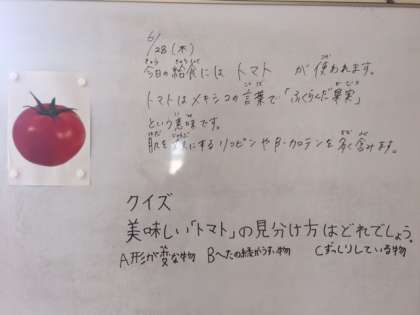 6/28(木)
今日の給食には トマト が使われます。
トマトはメキシコの言葉で「ふくらんだ果実」
という意味です。
肌を にするリコピンやβ-カロテンを多く含みます。
クイズ
美味しい「トマト」の見分け方はどれでしょう。
A形が変な物 Bへたの緑がうすい物 Cずっしりしている物